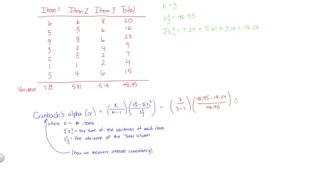 Item 1 Item 2 Item 3 Total
6 6 8 20
5 5 6 16
9 8 6 23
3 2 4 9
2 3 2 7
1 1 2 4
5 4 6 15
Variance 7.29 5.81 5.14 48.95
k = 3
s²y = 48.95
Σs²i = 7.29 + 5.81 + 5.14 = 18.24
Cronbach's alpha (α) = (k/k-1)(s²y - Σs²i/s²y) = (3/3-1)(48.95 - 18.24/48.95)
where k = # items
Σs²i = the sum of the variances of each item
s²y = the variance of the Total column
(how we measure internal consistency)